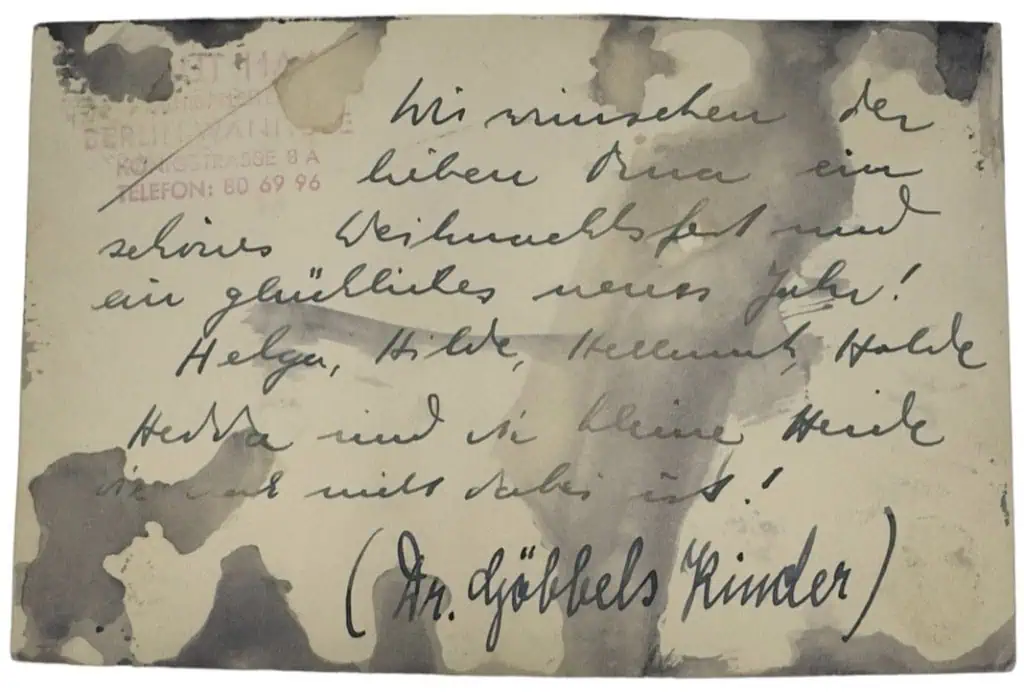 BERLIN-WANNSEE
KÖNIGSTRASSE 8 A
TELEFON: 80 69 96
Wir wünschen der
lieben ein
schönes Weihnachtsfest und
ein glückliches neues Jahr!
Helga, Hilde, Hellmut, Holde
Hedda und die kleine Heide
die noch nicht dabei ist!
(Dr. Göbbels Kinder)